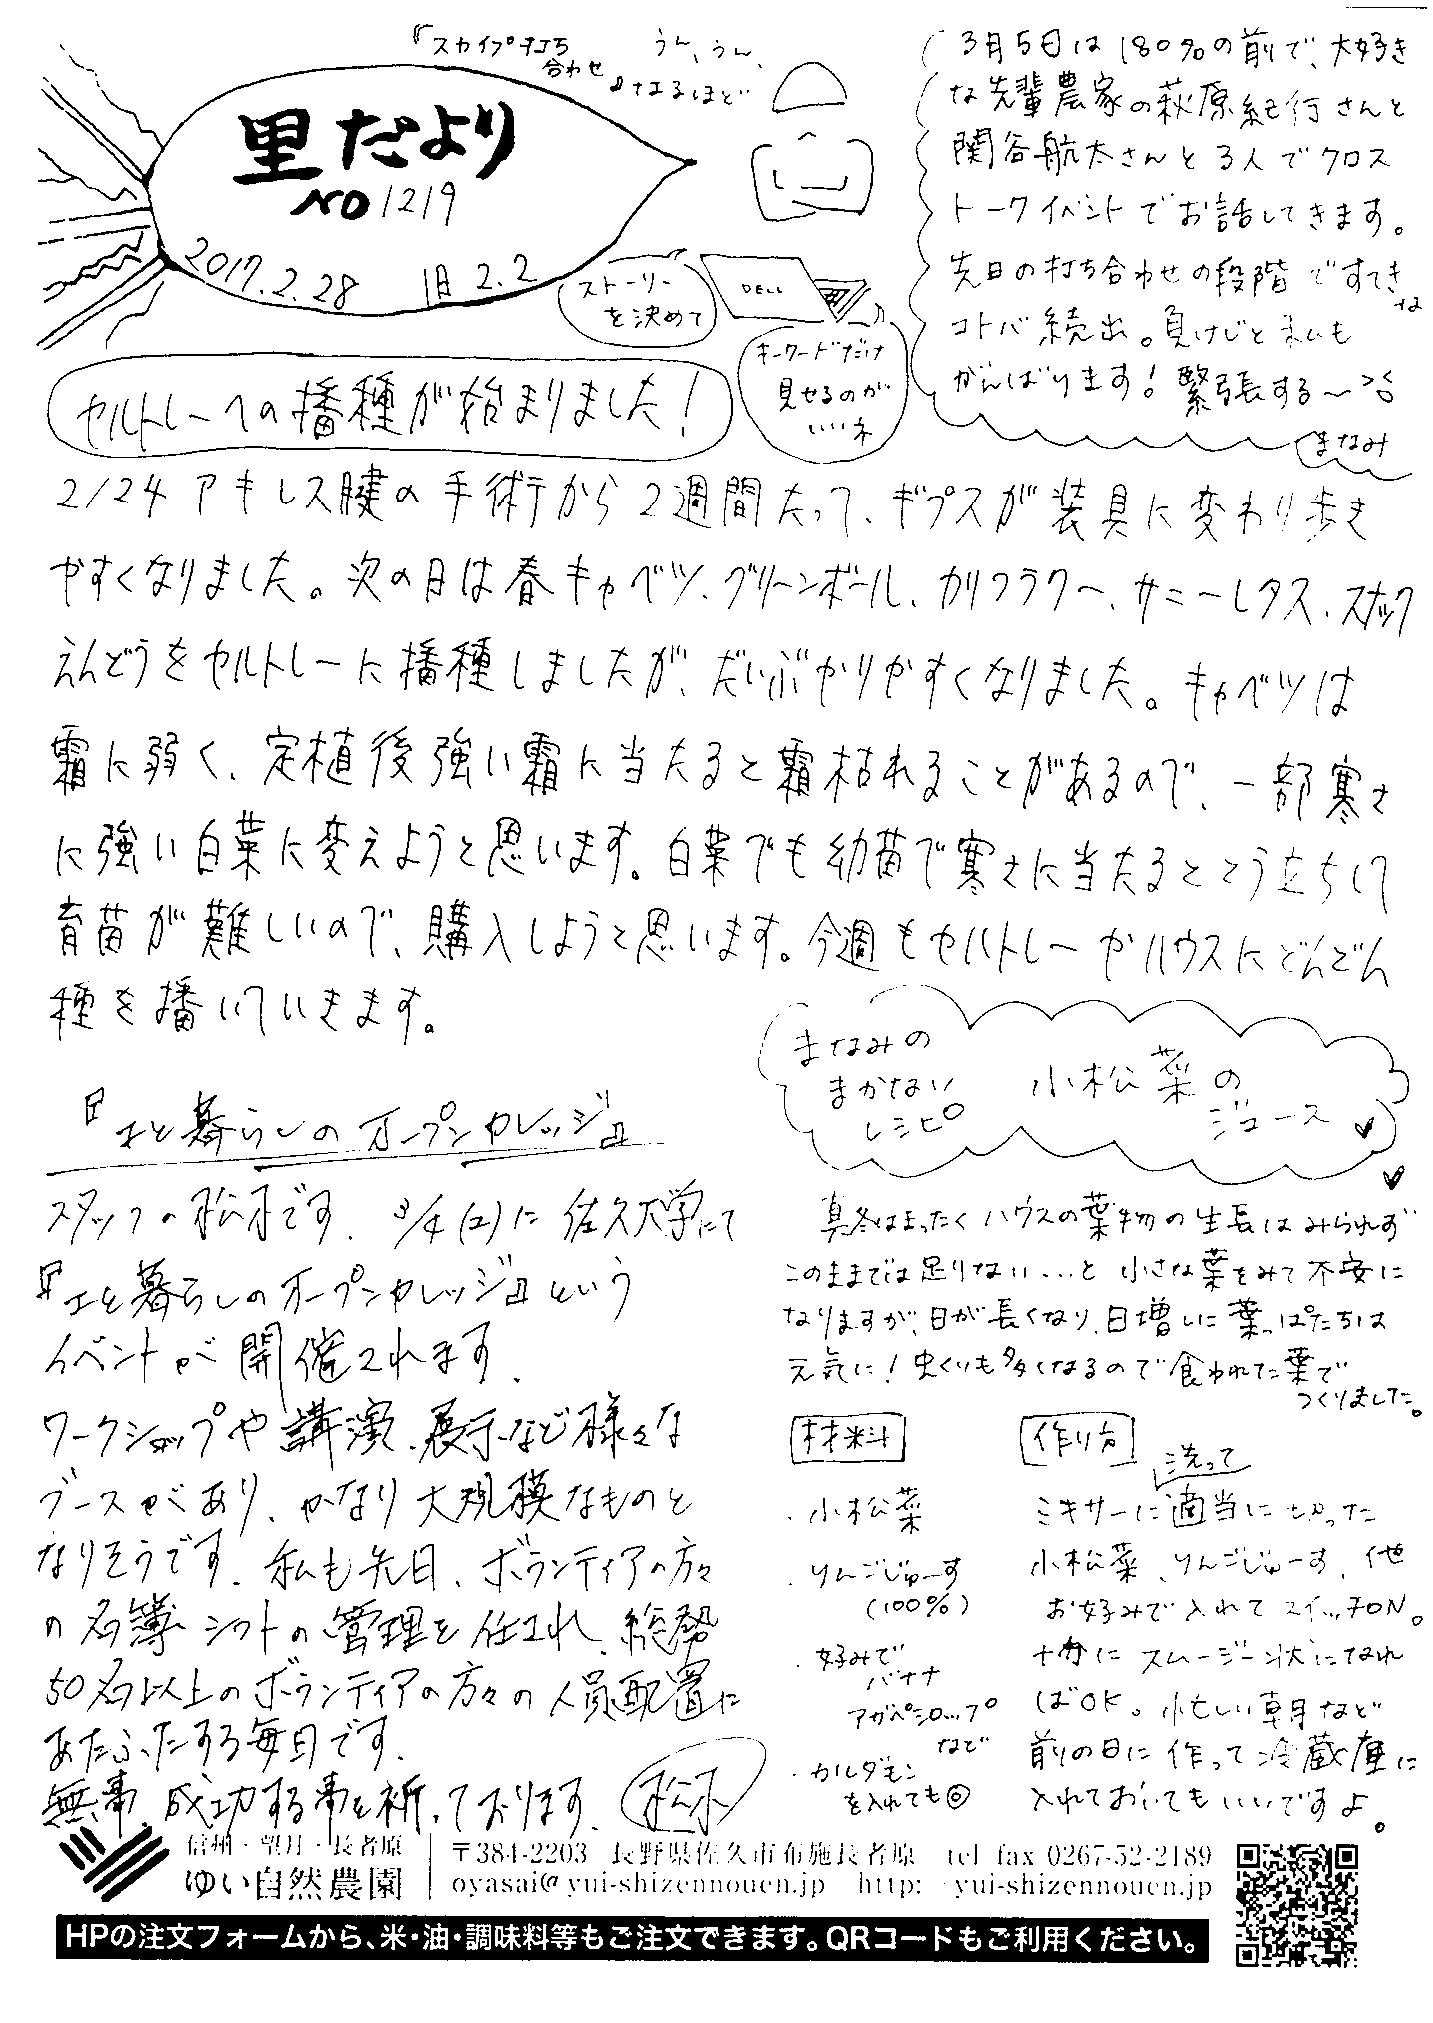 里だより
NO 1219
2017.2.28 旧2.2
『スカイプ打ち
合わせ』
うん、うん、
なるほど
ストーリー
を決めて
DELL
キーワードだけ
見せるのが
いいネ
3月5日は180%の前で、大好き
な先輩農家の萩原紀行さんと
関谷航太さんと3人でクロス
トークイベントでお話してきます。
先日の打ち合わせの段階ですてきな
コトバ続出。負けじと私も
がんばります!緊張する〜><
まなみ
セルトレーへの播種が始まりました!
2/24 アキレス腱の手術から2週間たって、ギプスが装具に変わり歩き
やすくなりました。次の日は春キャベツ、グリーンボール、カリフラワー、サニーレタス、スナック
えんどうをセルトレーに播種しましたが、だいぶやりやすくなりました。キャベツは
霜に弱く、定植後強い霜に当たると霜枯れることがあるので、一部寒さ
に強い白菜に変えようと思います。白菜でも幼苗で寒さに当たるととう立ちして
育苗が難しいので、購入しようと思います。今週もセルトレーやハウスにどんどん
種を播いていきます。
『土と暮らしのオープンカレッジ』
スタッフの松木です。3/4(土)に佐久大学にて
『土と暮らしのオープンカレッジ』という
イベントが開催されます。
ワークショップや講演、展示など様々な
ブースがあり、かなり大規模なものと
なりそうです。私も先日、ボランティアの方々
の名簿・シフトの管理を任され、総勢
50名以上のボランティアの方々の人員配置に
あたふたする毎日です。
無事、成功する事を祈っております。松木
まなみの
まかない
レシピ
小松菜の
ジュース
真冬はまったくハウスの葉物の生長はみられず
このままでは足りない...と小さな葉をみて不安に
なりますが、日が長くなり、日増しに葉っぱたちは
元気に!虫くいも多くなるので食われた葉で
つくりました。
材料
・小松菜
・りんごじゅーす
(100%)
・好みで
バナナ
アガベシロップ
など
・カルダモン
を入れても◎
作り方
洗って
ミキサーに適当に切った
小松菜、りんごじゅーす、他
お好みで入れてスイッチON。
十分にスムージー状になれ
ばOK。忙しい朝など
前の日に作って冷蔵庫に
入れておいてもいいですよ。
信州・望月・長者原
ゆい自然農園
〒384-2203 長野県佐久市布施長者原 tel fax 0267-52-2189
oyasai@yui-shizennouen.jp http: yui-shizennouen.jp
HPの注文フォームから、米・油・調味料等もご注文できます。QRコードもご利用ください。